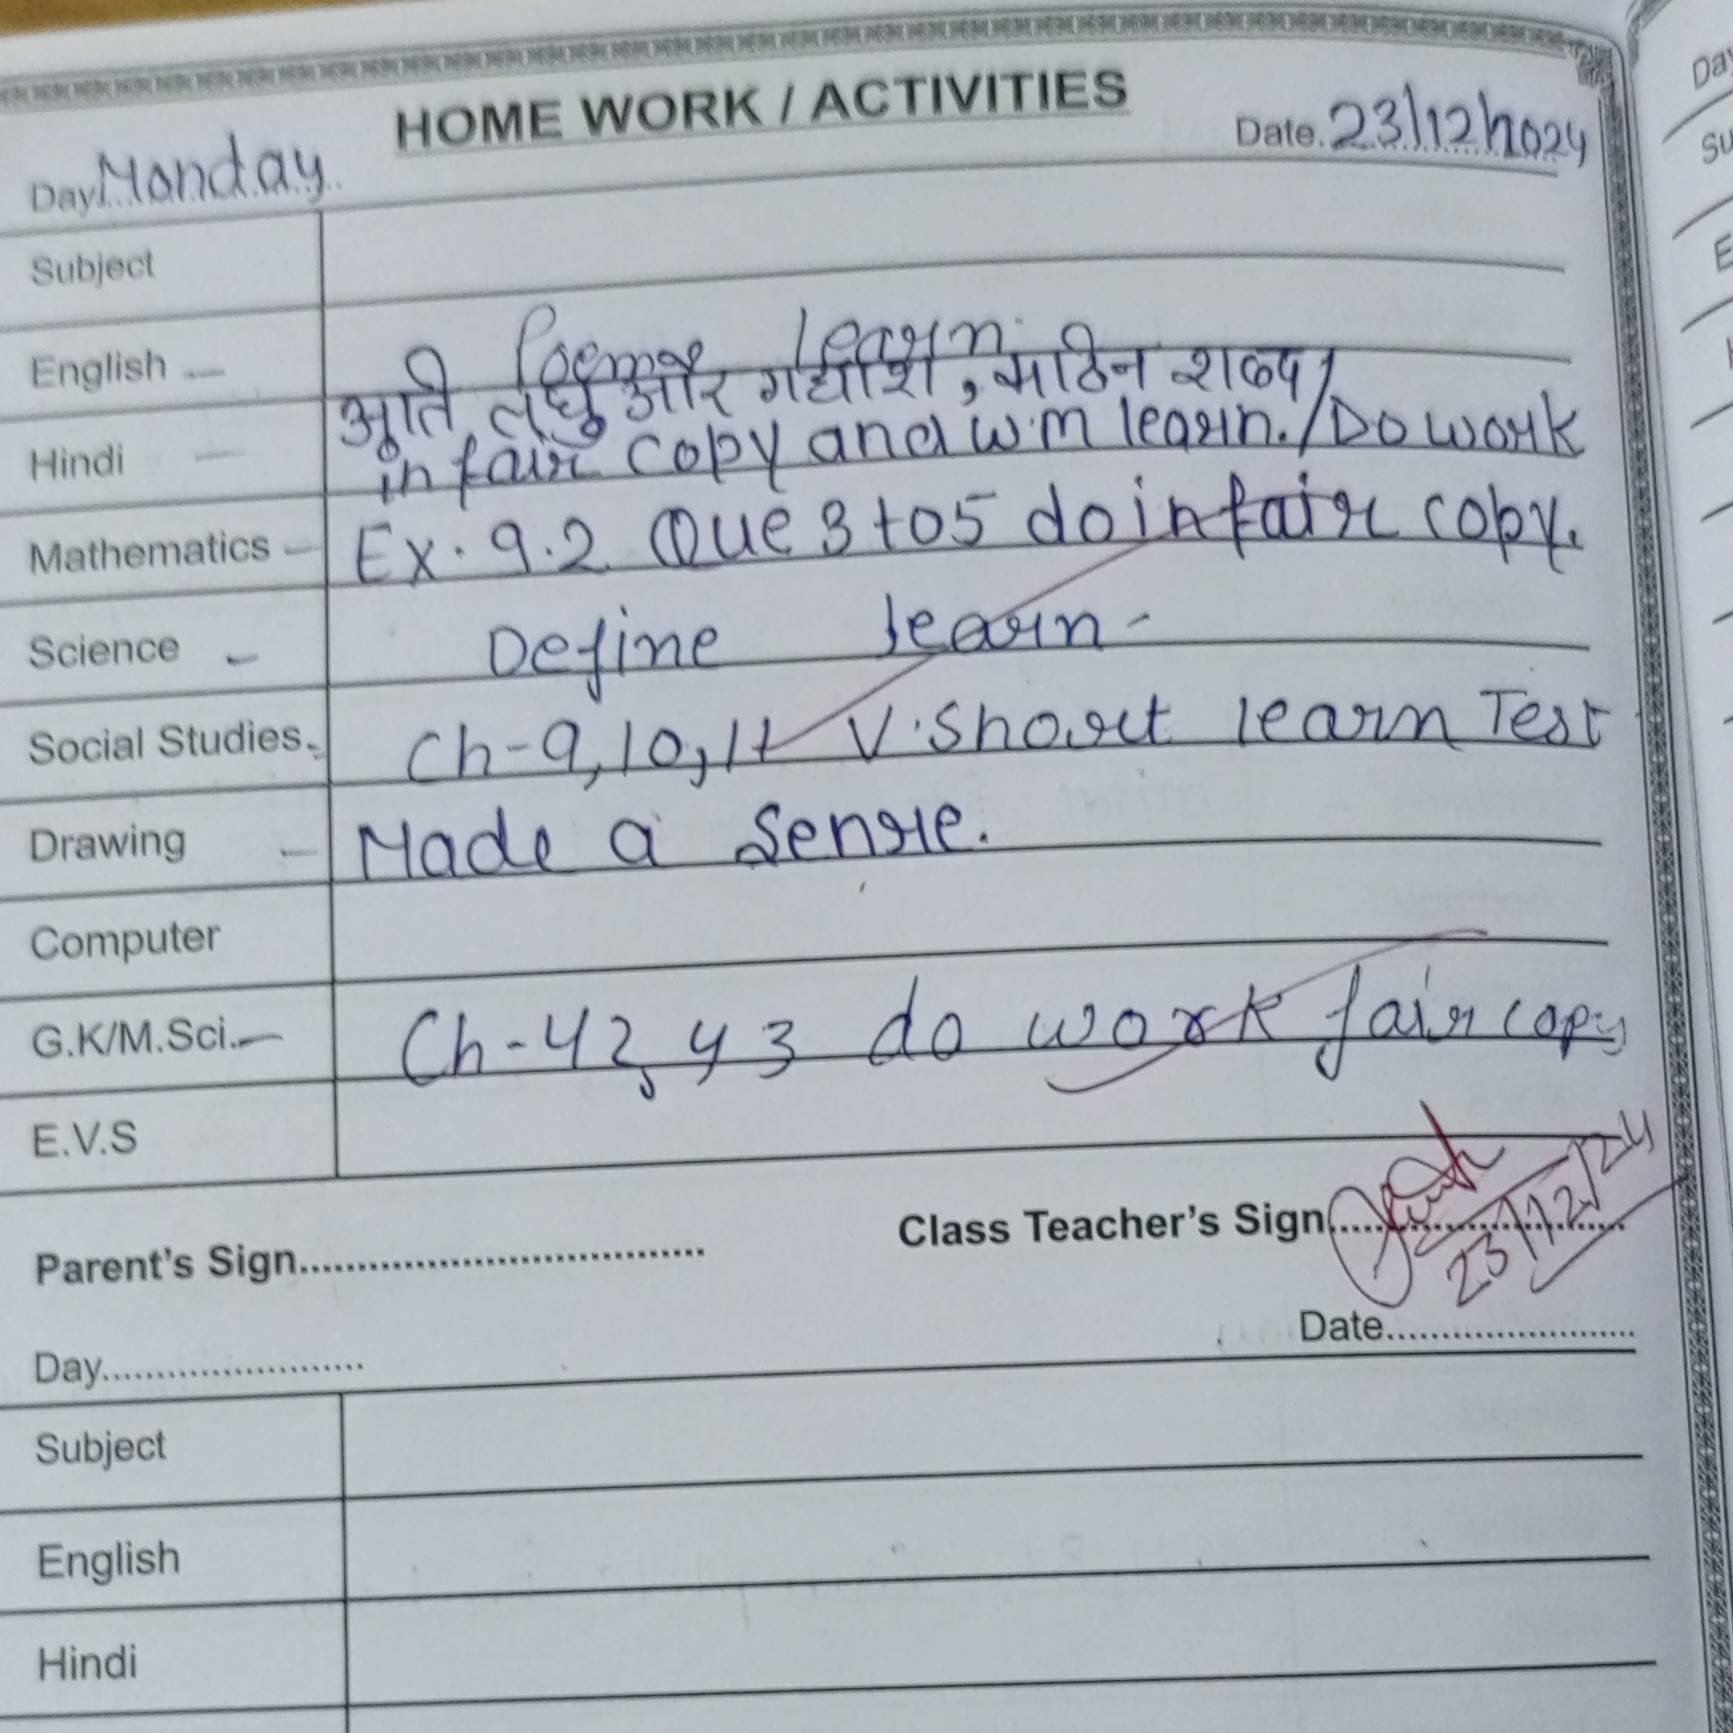 HOME WORK / ACTIVITIES
Day. Monday Date. 23/12/2024
Subject
English - Poem learn.
अति लघु और गद्यांश, कठिन शब्द /
Hindi - in fair copy and w.m learn. / Do work
Mathematics - Ex. 9.2 Que 3 to 5 do in fair copy.
Science - Define learn -
Social Studies. Ch-9, 10, 11 V. Short learn Test
Drawing - Made a Senrie.
Computer
G.K/M.Sci. - Ch-42, 43 do work fair copy
E.V.S
Parent's Sign. Class Teacher's Sign. 23/12/24
Day. Date.
Subject
English
Hindi
Da
Su
E